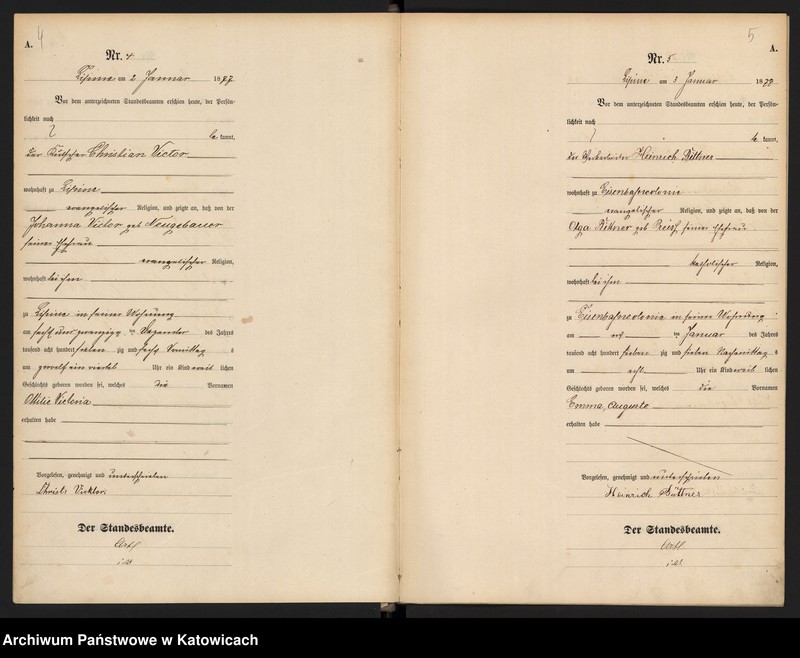 4
A.
Nr. 4
Lipine am 2 Januar 1877
Vor dem unterzeichneten Standesbeamten erschien heute, der Persön-
lichkeit nach
be kannt,
der Kutscher Christian Victor
wohnhaft zu Lipine
evangelischer Religion, und zeigte an, daß von der
Johanna Victor geb Neugebauer
seiner Ehefrau
evangelischer Religion,
wohnhaft bei ihm
zu Lipine in seiner Wohnung
am sechs und zwanzigg ten Dezember des Jahres
tausend acht hundert sieben zig und sechs Vormittag s
um zwoelf ein viertel Uhr ein Kind weib lichen
Geschlechts geboren worden sei, welches die Vornamen
Ottilie Victoria
erhalten habe
Vorgelesen, genehmigt und unterschrieben
Christi Vicktor
Der Standesbeamte.
i.V.
5
A.
Nr. 5
Lipine am 3 Januar 1877
Vor dem unterzeichneten Standesbeamten erschien heute, der Persön-
lichkeit nach
be kannt,
der Heinrich Bittner
wohnhaft zu
evangelischer Religion, und zeigte an, daß von der
Olga Bittner geb seiner Ehefrau
katholischer Religion,
wohnhaft bei ihm
zu in seiner Wohnung
am ten Januar des Jahres
tausend acht hundert sieben zig und sieben Nachmittag s
um acht Uhr ein Kind weib lichen
Geschlechts geboren worden sei, welches die Vornamen
Emma, Auguste
erhalten habe
Vorgelesen, genehmigt und unterschrieben
Heinrich Büttner
Der Standesbeamte.
i.V.
Archiwum Państwowe w Katowicach